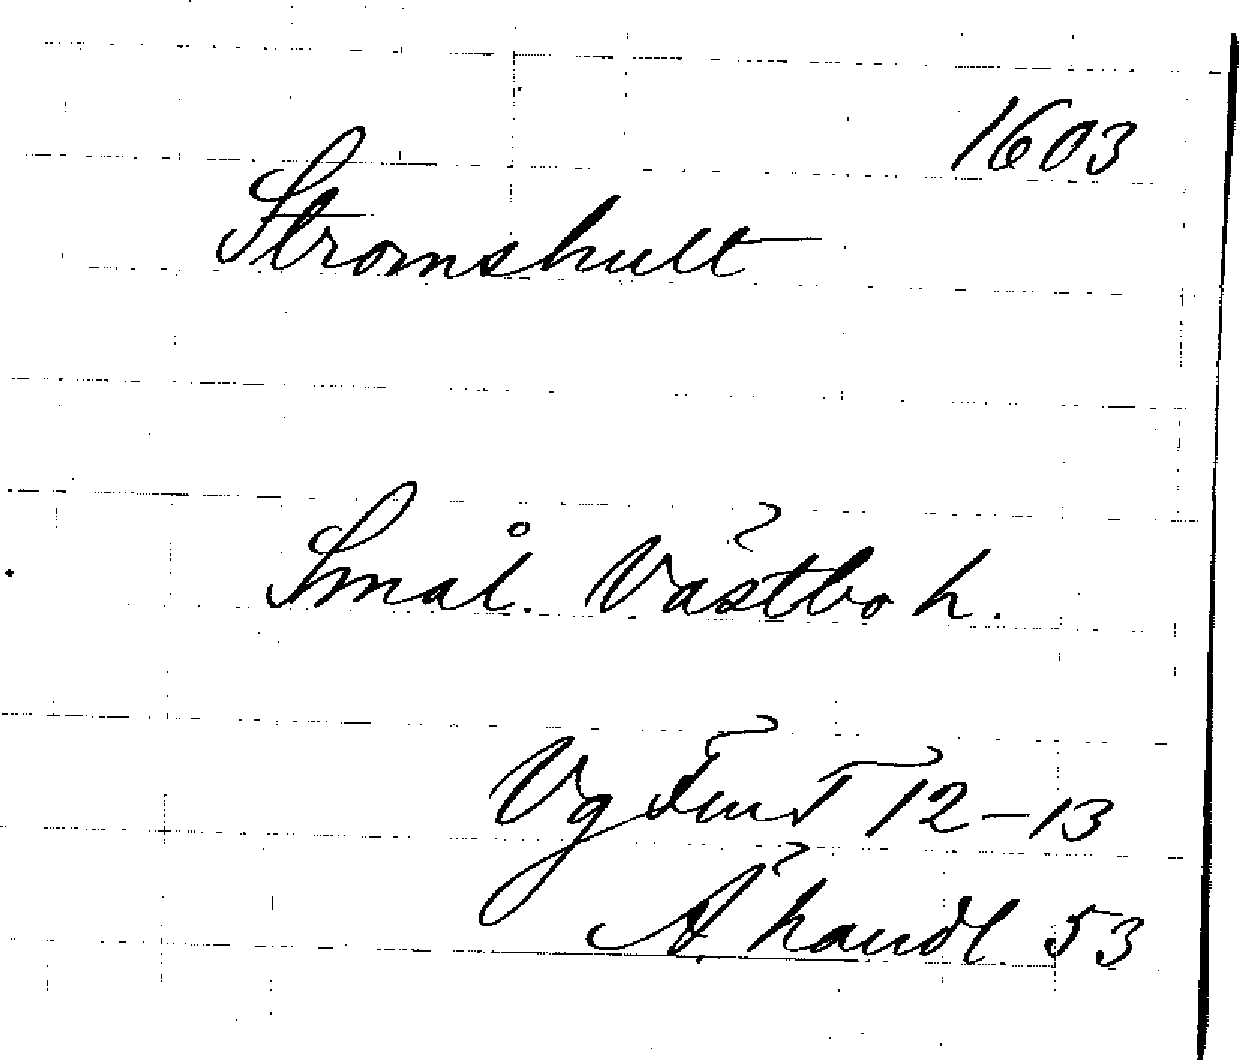 1603
Stromshult
Smål. Västbo h.
Vg 12-13
Ä handl 53